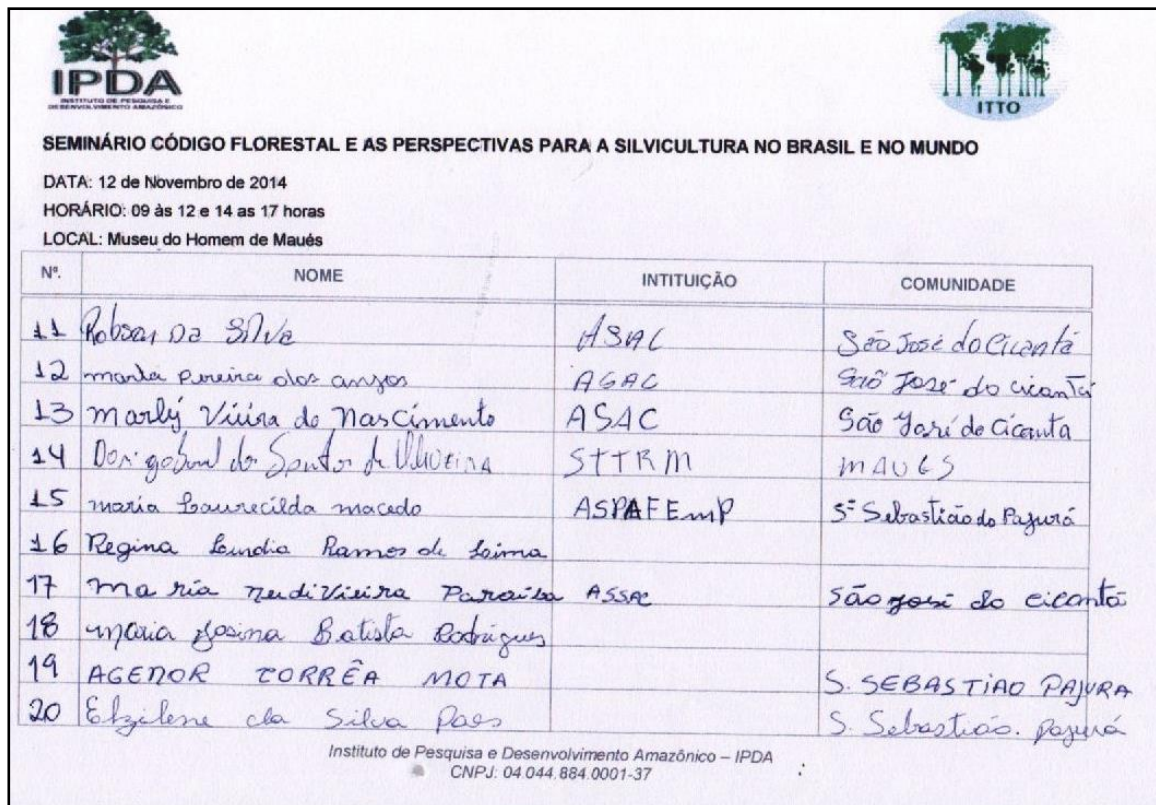 IPDA
INSTITUTO DE PESQUISA E
DESENVOLVIMENTO AMAZÔNICO
ITTO
SEMINÁRIO CÓDIGO FLORESTAL E AS PERSPECTIVAS PARA A SILVICULTURA NO BRASIL E NO MUNDO
DATA: 12 de Novembro de 2014
HORÁRIO: 09 às 12 e 14 as 17 horas
LOCAL: Museu do Homem de Maués
Nº. NOME INTITUIÇÃO COMUNIDADE
11 Robson Da Silva ASAC São José do Cicantá
12 maria Pereira dos anjos AGAC São José do cicantá
13 Marly Viiira do Nascimento ASAC São José do Cicanta
14 dos Santos de STTRM MAUES
15 maria Laurecilda macedo ASPAFEmP S= Sebastião do Pajurá
16 Regina Ramos de Loima
17 Maria neudi Vieira Paraiba ASSAC São José do cicantá
18 maria Josina Batista Rodrigues
19 AGENOR CORRÊA MOTA S. SEBASTIAO PAJURA
20 Elzilene da Silva Paes S. Sebastião. pajurá
Instituto de Pesquisa e Desenvolvimento Amazônico – IPDA
CNPJ: 04.044.884.0001-37